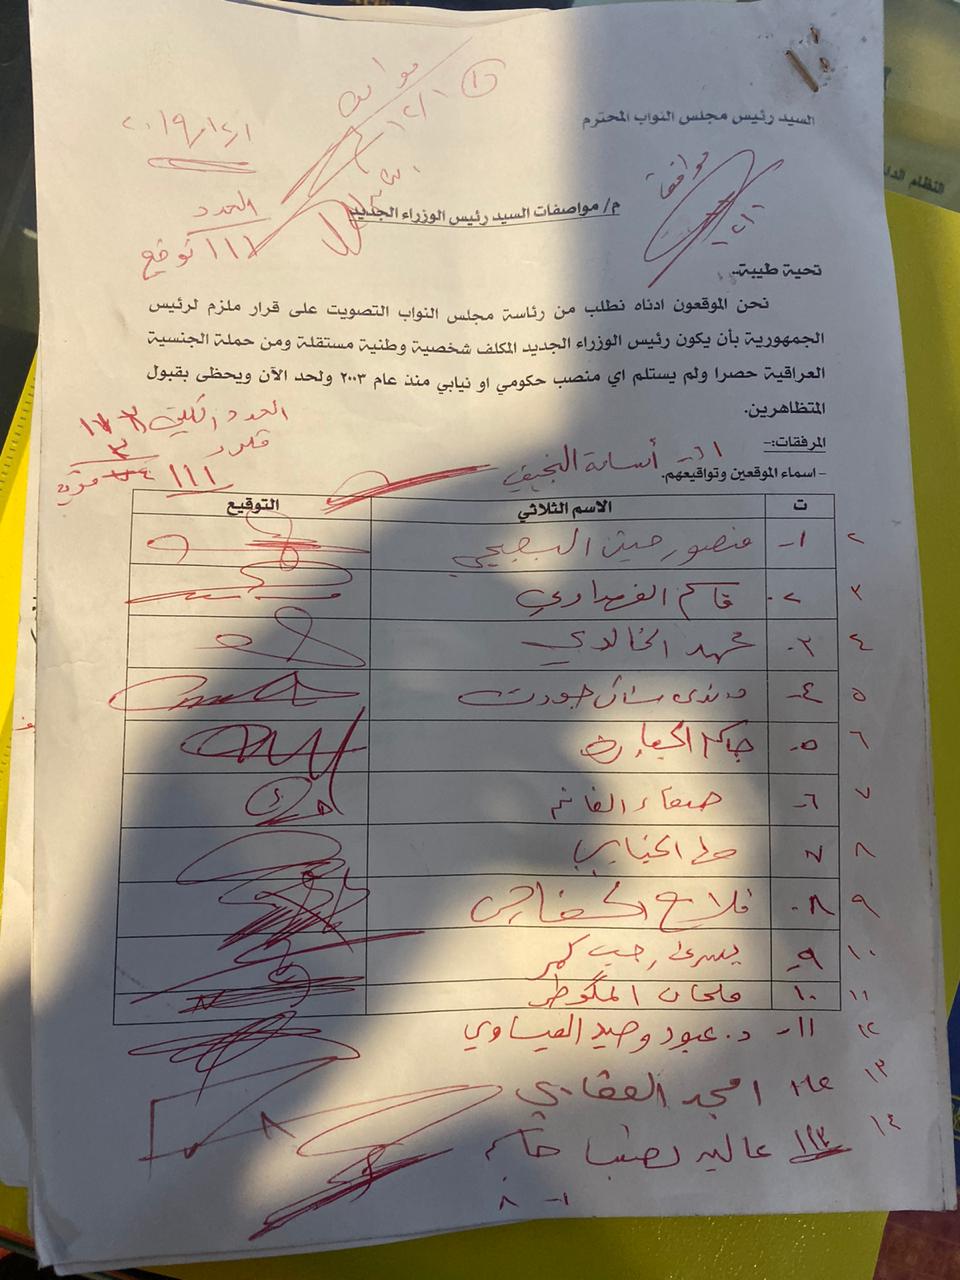 السيد رئيس مجلس النواب المحترم
٢٠١٩/١٢/١
موافق
١٢/١
العدد
١١١ توقيع
م/ مواصفات السيد رئيس الوزراء الجديد
تحية طيبة..
نحن الموقعون ادناه نطلب من رئاسة مجلس النواب التصويت على قرار ملزم لرئيس
الجمهورية بأن يكون رئيس الوزراء الجديد المكلف شخصية وطنية مستقلة ومن حملة الجنسية
العراقية حصرا ولم يستلم اي منصب حكومي او نيابي منذ عام ٢٠٠٣ ولحد الآن ويحظى بقبول
المتظاهرين.
العدد الكلي
مكرر
١١١
المرفقات:-
- اسماء الموقعين وتواقيعهم.
أسامة النجيفي
ت الاسم الثلاثي التوقيع
٢ ١- منصور حسين البعيجي
٣ ٢- قاسم الفهداوي
٤ ٣- محمد الخالدي
٥ ٤-
٦ ٥-
٧ ٦- صفاء الغانم
٨ ٧
٩ ٨- فلاح الخفاجي
١٠ ٩- يسرى رجب كمر
١١ ١٠- فلحان المكوطر
١٢ ١١- د. عبود وحيد العيساوي
١٣ امجد العقابي
١٤ عالية نصيف جاسم